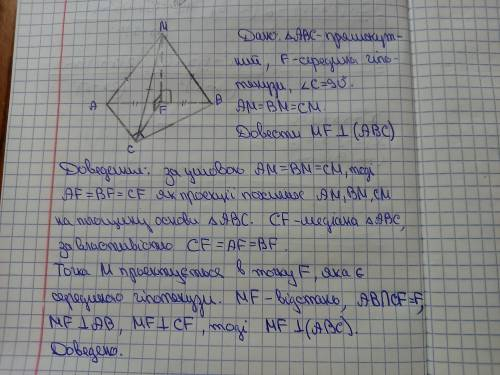 M
Дано: △ABC- прямокут-
ний, F- середина гіпо-
тенузи, ∠C=90°.
AM=BM=CM.
Довести MF⊥(ABC)
A
F
B
C
Доведення: за умовою AM=BM=CM, тоді
AF=BF=CF як проекції похилих AM, BM, CM
на площину основи △ABC. CF-медіана △ABC,
за властивістю CF=AF=BF.
Точка M проектується в точку F, яка є
серединою гіпотенузи. MF-відстань, AB∩CF=F,
MF⊥AB, MF⊥CF, тоді MF⊥(ABC).
Доведено.